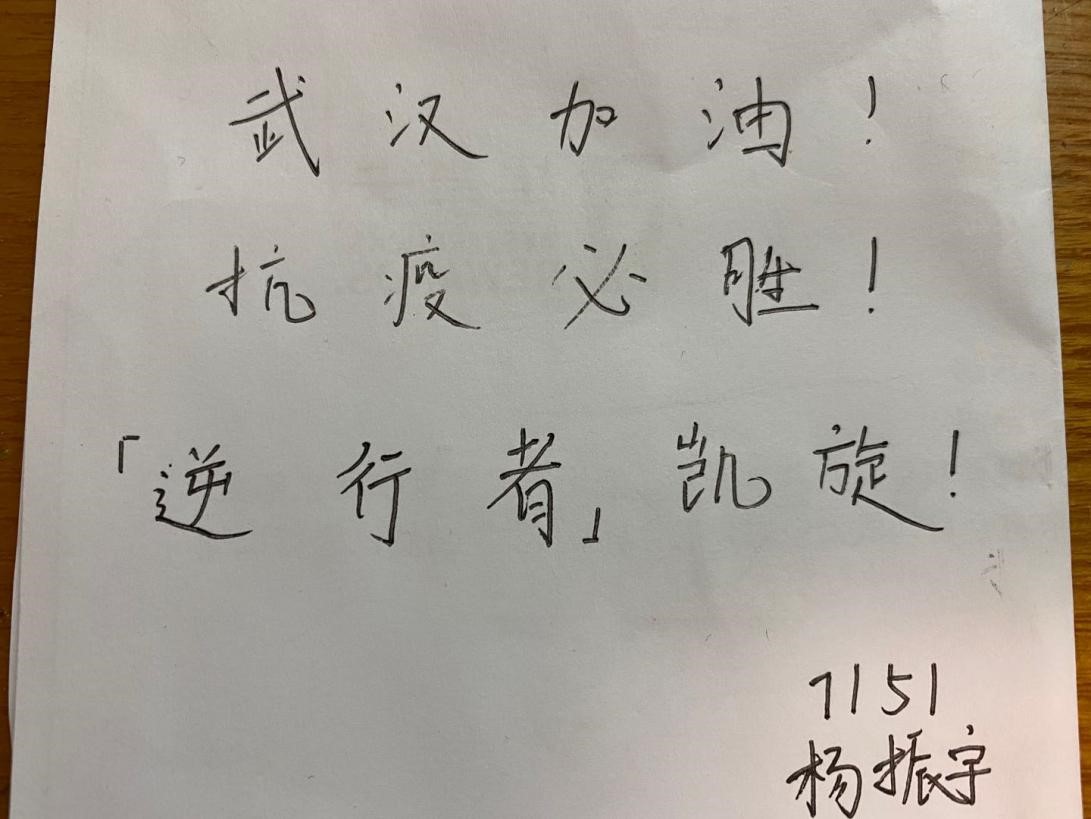 武汉加油！
抗疫必胜！
「逆行者」凯旋！
7151
杨振宇